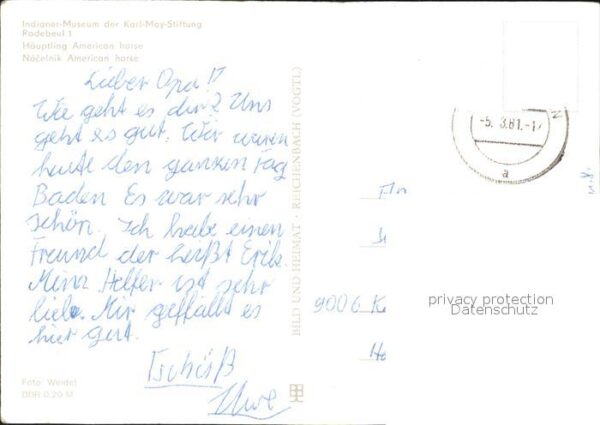 Indianer-Museum der Karl-May-Stiftung
Radebeul 1
Häuptling American horse
Náčelník American horse
Lieber Opa!!
Wie geht es dir? Uns
geht es gut. Wir waren
heute den ganzen Tag
Baden Es war sehr
schön. Ich habe einen
Freund der heißt Erik
Mein Helfer ist sehr
lieb. Mir gefällt es
hier gut.
Tschüß
Uwe
Foto: Weidel
DDR 0,20 M
BILD UND HEIMAT · REICHENBACH (VOGTL)
-5. 3.81.-1
a
9006 K
He
privacy protection
Datenschutz